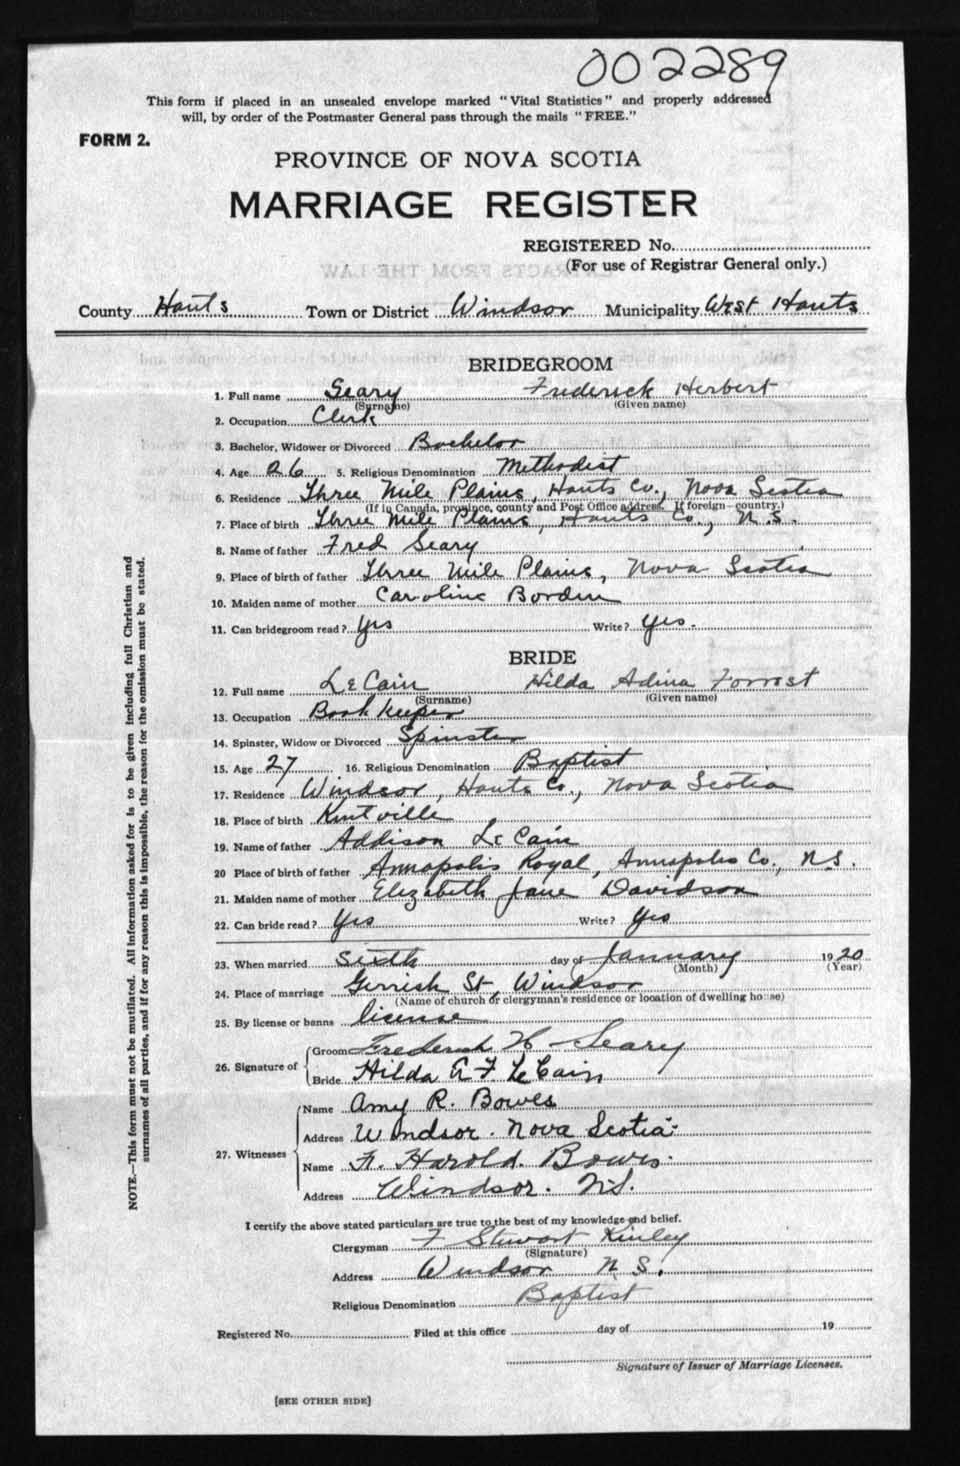 002289
This form if placed in an unsealed envelope marked "Vital Statistics" and properly addressed
will, by order of the Postmaster General pass through the mails "FREE."
FORM 2.
PROVINCE OF NOVA SCOTIA
MARRIAGE REGISTER
REGISTERED No.
(For use of Registrar General only.)
EXTRACTS FROM THE LAW
County Hants Town or District Windsor Municipality West Hants
BRIDEGROOM
1. Full name Seary Frederick Herbert
(Surname) (Given name)
2. Occupation Clerk
3. Bachelor, Widower or Divorced Bachelor
4. Age 26 5. Religious Denomination Methodist
6. Residence Three Mile Plains, Hants Co., Nova Scotia
(If in Canada, province, county and Post Office address. If foreign—country.)
7. Place of birth Three Mile Plains, Hants Co., N.S.
8. Name of father Fred Seary
9. Place of birth of father Three Mile Plains, Nova Scotia
10. Maiden name of mother Caroline Borden
11. Can bridegroom read? Yes Write? Yes.
BRIDE
12. Full name LeCain Hilda Adina Forrest
(Surname) (Given name)
13. Occupation Book Keeper
14. Spinster, Widow or Divorced Spinster
15. Age 27 16. Religious Denomination Baptist
17. Residence Windsor, Hants Co., Nova Scotia
18. Place of birth Kentville
19. Name of father Addison LeCain
20 Place of birth of father Annapolis Royal, Annapolis Co., N.S.
21. Maiden name of mother Elizabeth Jane Davidson
22. Can bride read? Yes Write? Yes
23. When married sixth day of January 1920
(Month) (Year)
24. Place of marriage Gerrish St, Windsor
(Name of church or clergyman's residence or location of dwelling house)
25. By license or banns license
26. Signature of Groom Frederick H Seary
Bride Hilda A F LeCain
27. Witnesses Name Amy R. Bowes
Address Windsor. Nova Scotia.
Name Fr. Harold Bowes.
Address Windsor. N.S.
I certify the above stated particulars are true to the best of my knowledge and belief.
Clergyman F Stewart Kinley
(Signature)
Address Windsor N S.
Religious Denomination Baptist
Registered No. Filed at this office day of 19
Signature of Issuer of Marriage Licenses.
[SEE OTHER SIDE]
NOTE.—This form must not be mutilated. All information asked for is to be given including full Christian and
surnames of all parties, and if for any reason this is impossible, the reason for the omission must be stated.